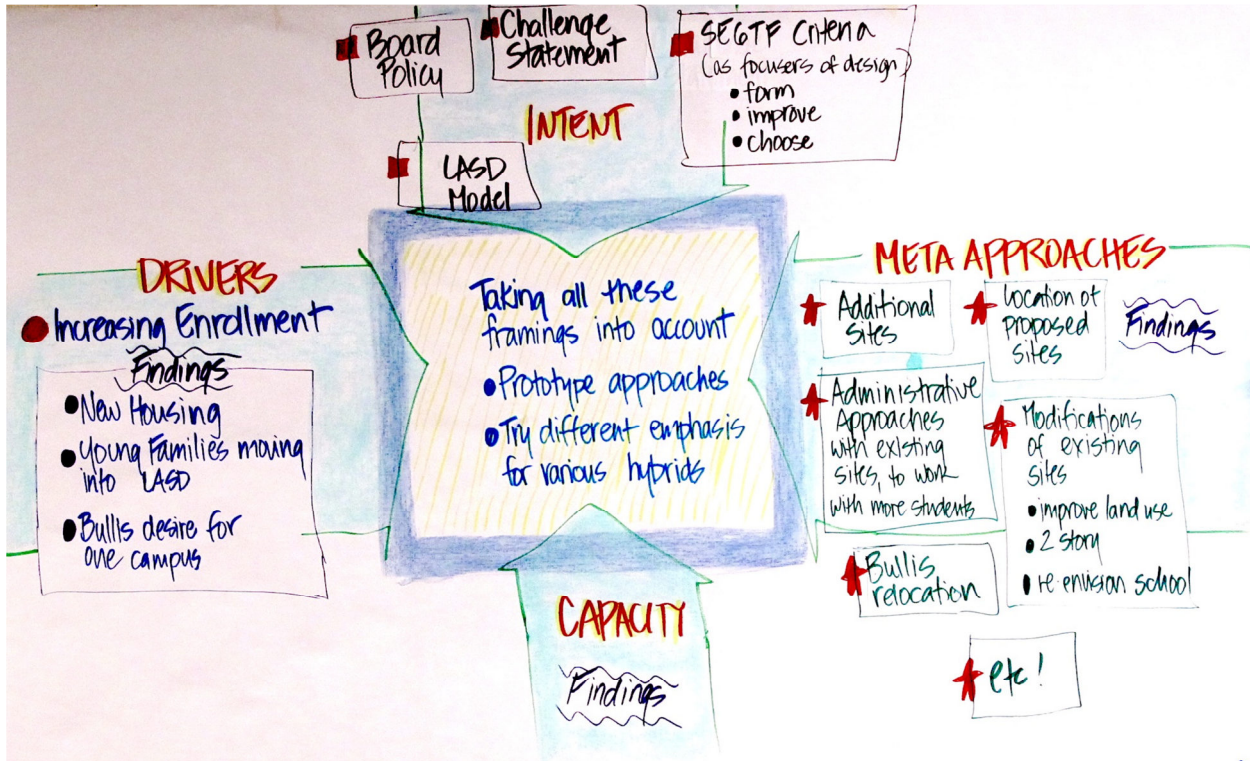 Board
Policy
Challenge
Statement
SEGTF Criteria
(as focusers of design)
• form
• improve
• choose
INTENT
LASD
Model
DRIVERS
Increasing Enrollment
Findings
• New Housing
• Young Families moving
into LASD
• Bullis desire for
one campus
Taking all these
framings into account
• Prototype approaches
• Try different emphasis
for various hybrids
META APPROACHES
Additional
Sites
Location of
proposed
sites
Findings
Administrative
Approaches
with existing
sites, to work
with more students
Modifications
of existing
sites
• improve land use
• 2 story
• re-envision school
Bullis
relocation
etc!
CAPACITY
Findings